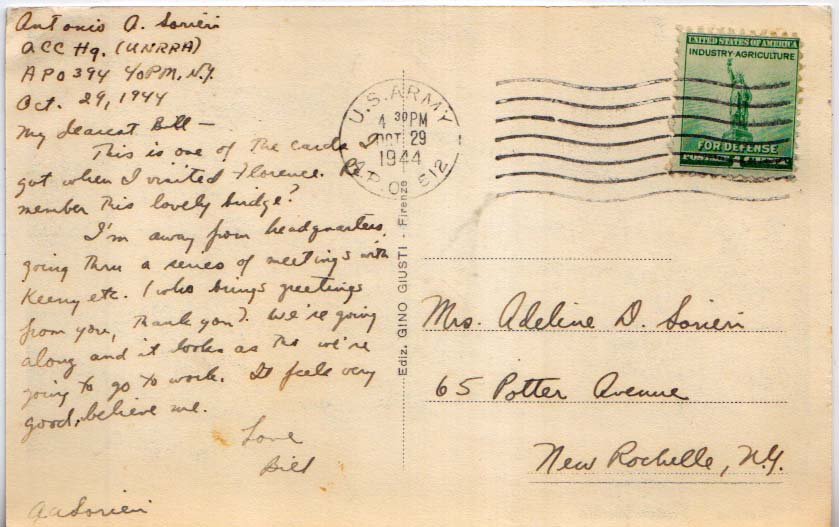 Antonio A. Sorieri
ACC Hq. (UNRRA)
APO 394 c/o PM, N.Y.
Oct. 29, 1944
My dearest Bill —
This is one of the cards I
got when I visited Florence. Re
member this lovely bridge?
I'm away from headquarters,
going thru a series of meetings with
Keeny etc. (who brings greetings
from you, thank you). We're going
along and it looks as tho we're
going to go to work. It feels very
good, believe me.
Love
Bill
AASorieri
Ediz. GINO GIUSTI - Firenze
U.S. ARMY
4 30 PM
OCT 29
1944
A.P.O. 512
UNITED STATES OF AMERICA
INDUSTRY·AGRICULTURE
FOR DEFENSE
Mrs. Adeline D. Sorieri
65 Potter Avenue
New Rochelle, N.Y.